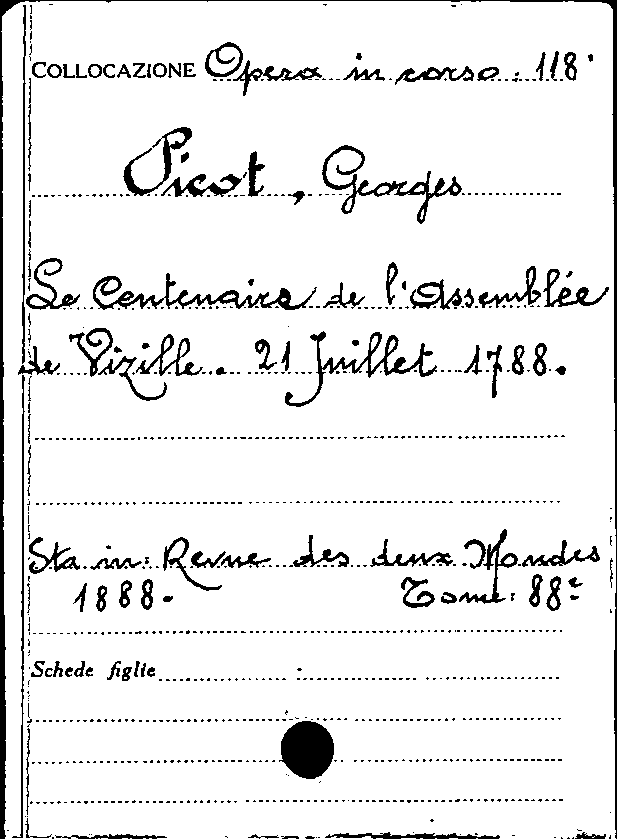 COLLOCAZIONE Opera in corso. 118.
Picot, Georges
Le Centenaire de l'Assemblée
de Vizille. 21 Juillet 1788.
Sta in: Revue des deux Mondes
1888. Tome: 88º
Schede figlie